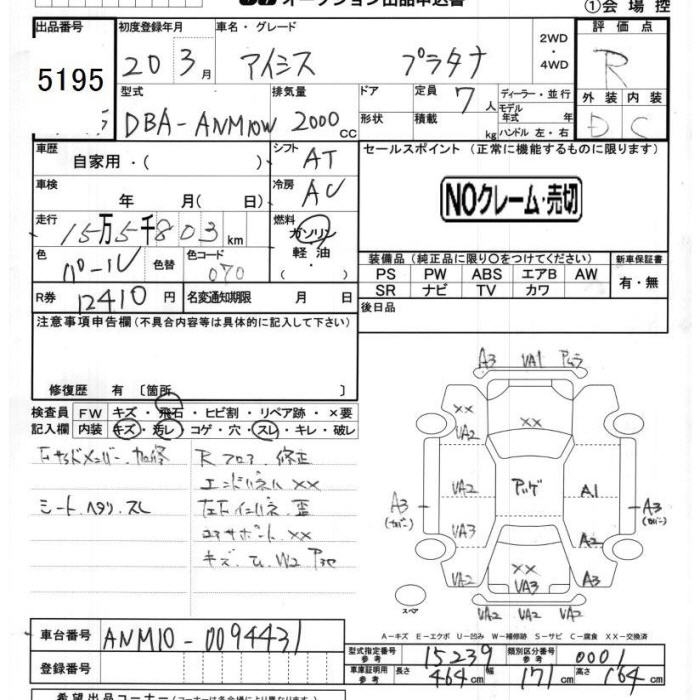 オークション出品申込書
①会場控
出品番号 初度登録年月 車名・グレード 2WD・4WD 評価点
5195 20 3月 アイシス プラタナ R
型式 排気量 ドア 定員 7人 ディーラー・並行 外装 内装
DBA-ANM10W 2000cc 形状 積載 kg モデル年式 年式 ハンドル 左・右 D C
車歴 自家用・( ) シフト AT セールスポイント (正常に機能するものに限ります)
車検 年 月( 日) 冷房 AC NOクレーム・売切
走行 15万5千803km 燃料 ガソリン・軽油・( )
装備品(純正品に限り○をつけてください) 新車保証書
色 パール 色替 色コード 070
PS PW ABS エアB AW 有・無
SR ナビ TV カワ
R券 12410円 名変通知期限 月 日 後日品
注意事項申告欄(不具合内容等は具体的に記入して下さい)
修復歴 有 [箇所 ]
検査員 FW キズ・飛石・ヒビ割・リペア跡・×要
記入欄 内装 キズ・汚レ・コゲ・穴・スレ・キレ・破レ
R フロア 修正
エンドパネル XX
シート ヘタリ、スレ
コアサポート XX
A3 VA1
XX
VA2 XX
VA2 A1
A3 A3
VA3 A2
XX
VA2 VA3 A3
VA2 VA2 VA2
スペア
A-キズ E-エクボ U-凹み W-補修跡 S-サビ C-腐食 XX-交換済
車台番号 ANM10-0094431
登録番号
型式指定番号 参考 15239 類別区分番号 参考 0001
車庫証明用 参考 長さ 464cm 幅 171cm 高さ 164cm
希望出品コーナー